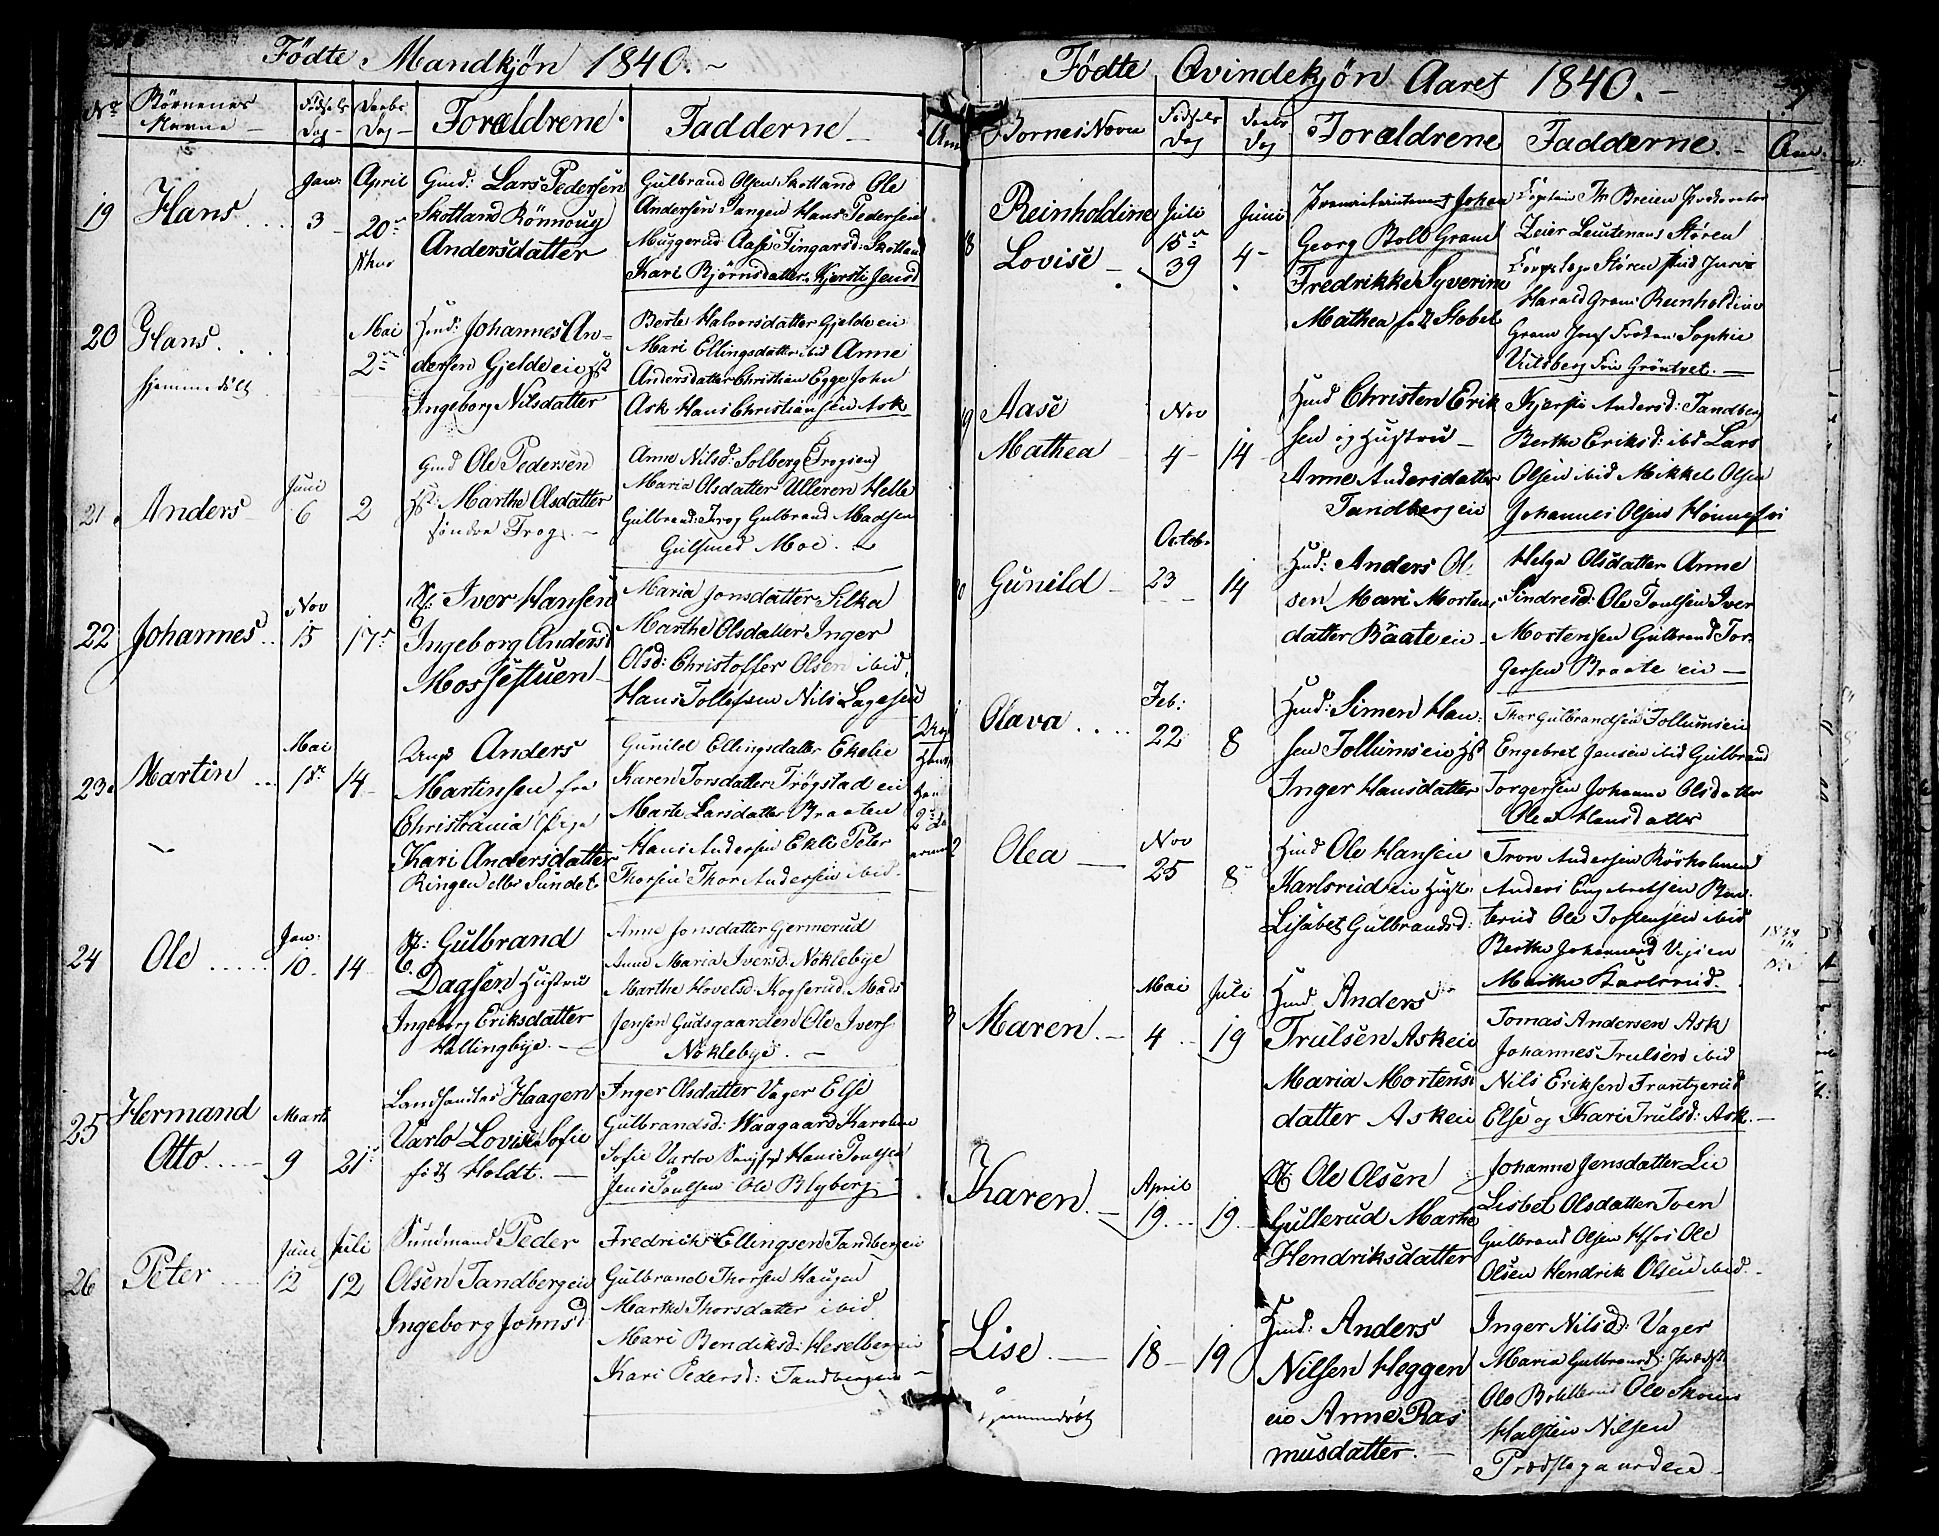 Fødte Mandkjøn 1840. ~
No Børnenes Navne Fødsels Dag Daabs Dag Forældrene. Fadderne Anm
19 Hans Jan: 3 April 20de
Gmd: Lars Pedersen
Skotland Rönnoug
Andersdatter
Gulbrand Olsen Skotland Ole
Andersen Tangen Hans Pedersen
Muggerud Aase Tingarsd: Skotland
Kari Björnsdatter Kjersti Jensd
20 Hans hjemmedöbt Mai 2den
Hmd: Johannes An-
dersen Gjeldeeie Hst
Ingeborg Nilsdatter
Berte Halvorsdatter Gjeldeeie
Mari Ellingsdatter ibid Anne
Andersdatter Christian Egge John
Ask Hans Christiansen Ask
21. Anders Juni 6 2
Gmd Ole Pedersen
Hst: Marthe Olsdatter
söndre Frog. ~
Anne Nilsd: Solberg (Frogeie)
Maria Olsdatter Ulleren Helle
Gulbrand: Frog Gulbrand Madsen
Gulsmed Moe. ~
22 Johannes Nov 15 17de
Iver Hansen
Ingeborg Andersd
Mossestuen
Maria Jonsdatter Silka
Marthe Olsdatter Inger
Olsd: Christoffer Olsen ibid
Hans Tollefsen Nils Lagesen
23. Martin Mai 18de 14
Ungk Anders
Martinsen fra
Christiania Pige
Kari Andersdatter
Ringen eller Sundet
Gunild Ellingsdatter Ekelie
Karen Torsdatter Trögstad eie
Marte Larsdatter Braaten
Hans Andersen Ekli Peter
Thorsen Thor Andersen ibid.
24 Ole Jan: 10 14
Gulbrand
Dagsen Hustru
Ingeborg Eriksdatter
Hallingbye. ~
Anne Jonsdatter Germerud
Anne Maria Iversd: Nöklebye
Marthe Hovelsd: Mads
Jensen Gudsgaarden Ole Ivers
Nöklebye. ~
25 Hermand Otto Marts 9 21de
Landhandler Haagen
Varlo Lovise Sofie
född Holdt. ~
Inger Olsdatter Vager Else
Gulbrandsd: Waagaard Karoline
Sofie Varloe Hans Poulsen
Jens Poulsen Ole Blyberg
26 Peter Juni 12 Juli 12
Sundmand Peder
Olsen Tandbergeie
Ingeborg Johnsd
Fredrick Ellingsen Tandbergeie
Gulbrand Thorsen Haugen
Marthe Thorsdatter ibid
Mari Bendiksd: Heselbergeie
Kari Pedersd: Tandbergeie
Fødte Qvindekjøn Aaret 1840. ~
Bornes Navne Fødsels Dag Daabs Dag Forældrene Fadderne. Anm.
18 Reinholdine Lovise Juli 15de 39 Juni 4
Premierlieutenant Johan
Georg Boll Gram
Fredrikke Syverine
Mathea född Stobel
Captain Th Breien Procurator
Zeier Leutenans Støren
Støren stud Juris
Harald Gram Reinholdine
Gram Josef Froden Sophie
Vuldberg Frie Gröntvet. ~
19 Aase Mathea Nov 4 14
Hmd Christen Erik
sen og Hustru
Anne Andersdatter
Tandbergeie
Kjersti Andersd: Tandberg
Berthe Eriksd: ibid Lars
Olsen ibid Mikkel Olsen
Johannes Olsen Hönnefos
20 Gunild Octob. 23 14
Hmd: Anders Ol-
sen Mari Mortens
datter Bäateeie
Helga Olsdatter Anne
Sindresd: Ole Poulsen Iver
Mortensen Gulbrand Tor-
gersen Braate eie
Olava Feb: 22 8
Hmd: Simen Han-
sen Tollumseie Hst
Inger Hansdatter
Thor Gulbrandsen Tollumseie
Engebret Jensen ibid Gulbrand
Torgersen Johanne Olsdatter
Olea Hansdatter
2 Olea Nov 25 8
Hmd Ole Hansen
Karlsrud eie Hust.
Lisabet Gulbrandsd:
Tron Andersen Rösholmen
Anders Engebretsen Bre-
brud Ole Jostensen ibid
Berthe Johannesd Vejsien
Marthe Karlsrud.
3 Maren Mai 4 Juli 19
Hmd: Anders
Trulsen Askeie
Maria Mortens
datter Askeie
Tomas Andersen Ask
Johannes Trulsen ibid
Nils Eriksen Frantzerud
Else og Kari Trulsd: Ask.
Karen April 19 19
Ole Olsen
Gullerud Marthe
Hendriksdatter
Johanne Jensdatter Lie
Lisbet Olsdatter Tven
Gulbrand Olsen Hfos Ole
Olsen Hendrik Olsen ibid.
Lise hjemmedöbt 18 19
Hmd: Anders
Nilsen Heggen
eie Anne Ras
musdatter.
Inger Nilsd: Vager
Maria Gulbrandsd: Prædst
Ole Ole Skoens
Halsten Nilsen
Prædstegaardeie